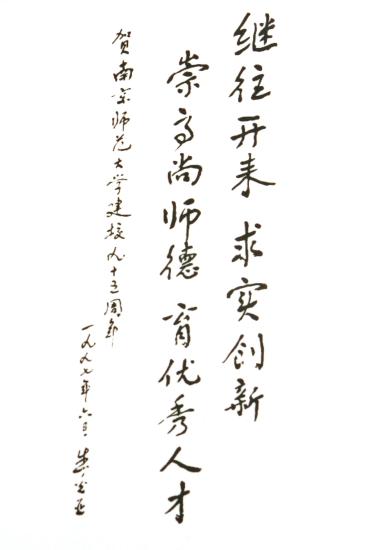 继往开来 求实创新
崇高尚师德 育优秀人才
贺南京师范大学建校九十五周年
一九九七年六月 朱光亚